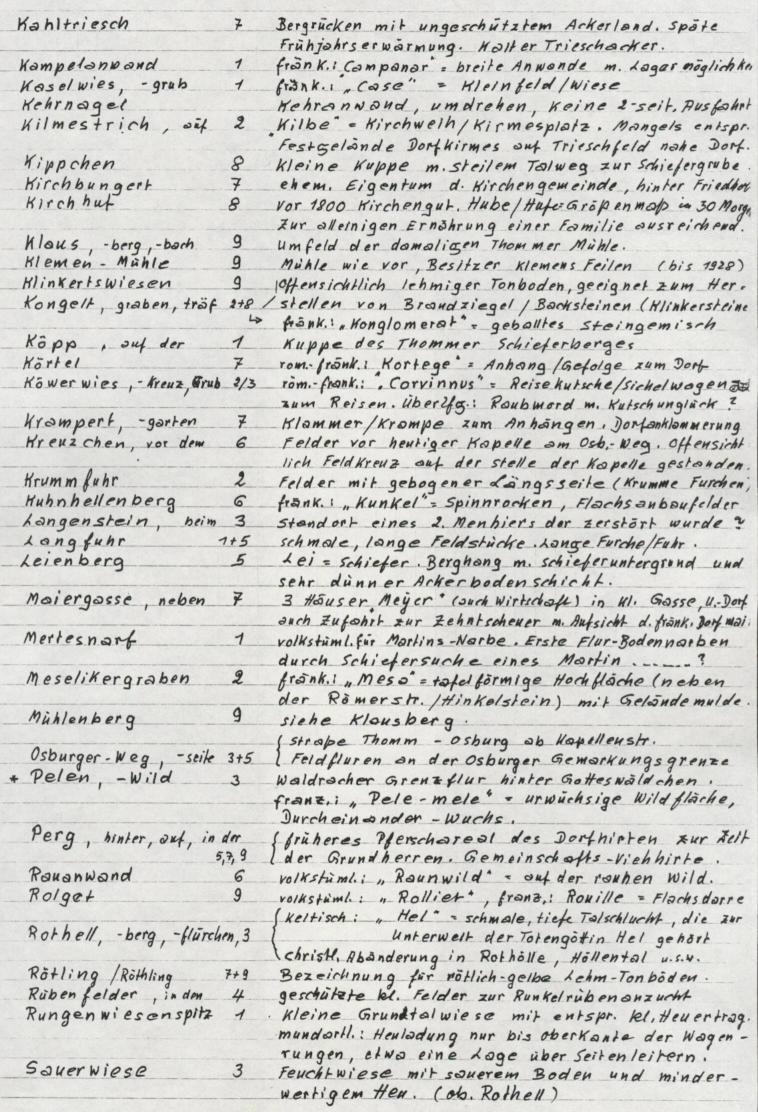 Kahltriesch 7 Bergrücken mit ungeschütztem Ackerland. Späte
Frühjahrserwärmung. Kalter Trieschacker.
Kampelanwand 1 fränk.: "Campanar" = breite Anwande m. Lagermöglichkei
Kaselwies, -grub 1 fränk.: "Case" = Kleinfeld/Wiese
Kehrnagel Kehranwand, umdrehen, keine 2-seit. Ausfahrt
Kilmestrich, auf 2 "Kilbe" = Kirchweih/Kirmesplatz. Mangels entspr.
Festgelände Dorfkirmes auf Trieschfeld nahe Dorf.
Kippchen 8 kleine Kuppe m. steilem Talweg zur Schiefergrube.
Kirchbungert 7 ehem. Eigentum d. Kirchengemeinde, hinter Friedhof
Kirchhuf 8 vor 1800 Kirchengut. Hube/Hufe-Größenmaß in 30 Morgn,
zur alleinigen Ernährung einer Familie ausreichend.
Klaus, -berg, -bach 9 Umfeld der damaligen Thommer Mühle.
Klemen-Mühle 9 Mühle wie vor, Besitzer Klemens Feilen (bis 1928)
Klinkertswiesen 9 offensichtlich lehmiger Tonboden, geeignet zum Her-
Kongelt, graben, träf 2+8 / stellen von Brandziegel/Backsteinen (Klinkersteine
↳ fränk.: "Konglomerat" = geballtes Steingemisch
Köpp, auf der 1 Kuppe des Thommer Schieferberges
Körtel 7 rom.-fränk.: Kortege" = Anhang/Gefolge zum Dorf
Köwerwies, -Kreuz, Grub 2/3 röm.-frank.: "Corvinnus" = Reisekutsche/Sichelwagen
zum Reisen. Überlfg.: Raubmord m. Kutschunglück?
Krampert, -garten 7 Klammer/Krampe zum Anhängen. Dorfanklammerung
Kreuzchen, vor dem 6 Felder vor heutiger Kapelle am Osb.-Weg. Offensicht
lich Feldkreuz auf der Stelle der Kapelle gestanden.
Krummfuhr 2 Felder mit gebogener Längsseite (Krumme Furchen,
Kuhnhellenberg 6 fränk.: "Kunkel" = Spinnrocken, Flachsanbaufelder
Langenstein, beim 3 Standort eines 2. Menhiers der zerstört wurde?
Langfuhr 1+5 schmale, lange Feldstücke. Lange Furche/Fuhr.
Leienberg 5 Lei = Schiefer. Berghang m. Schieferuntergrund und
sehr dünner Ackerbodenschicht.
Maiergasse, neben 7 3 Häuser "Meyer" (auch Wirtschaft) in kl. Gasse, U.-Dorf
auch Zufahrt zur Zehntscheuer m. Aufsicht d. fränk. Dorfmai.
Mertesnarf 1 volkstüml. für Martins-Narbe. Erste Flur-Bodennarben
durch Schiefersuche eines Martin ........?
Meselikergraben 2 fränk.: "Mesa" = tafelförmige Hochfläche (neben
der Römerstr./Hinkelstein) mit Geländemulde.
Mühlenberg 9 siehe Klausberg.
Straße Thomm - Osburg ab Kapellenstr.
Osburger-Weg, -seite 3+5 Feldfluren an der Osburger Gemarkungsgrenze
* Pelen, -Wild 3 Waldracher Grenzflur hinter Gotteswäldchen.
franz.: "Pele-mele" = urwüchsige Wildfläche,
Durcheinander-Wuchs.
Perg, hinter, auf, in der { früheres Pferchareal des Dorfhirten zur Zeit
5,7,9 der Grundherren. Gemeinschafts-Viehhirte.
Rauanwand 6 volkstüml.: "Raunwild" = auf der rauhen Wild.
Rolget 9 volkstüml.: "Rolliet", franz.: Rouille = Flachsdarre
keltisch: "Hel" = schmale, tiefe Talschlucht, die zur
Rothell, -berg, -flürchen, 3 Unterwelt der Totengöttin Hel gehört
christl. Abänderung in Rothölle, Höllental u.s.w.
Rötling/Röthling 7+9 Bezeichnung für rötlich-gelbe Lehm-Tonböden.
Rübenfelder, in den 4 geschützte kl. Felder zur Runkelrübenanzucht
Rungenwiesenspitz 1 kleine Grundtalwiese mit entspr. kl. Heuertrag.
mundartl.: Heuladung nur bis Oberkante der Wagen-
rungen, etwa eine Lage über Seitenleitern.
Sauerwiese 3 Feuchtwiese mit sauerem Boden und minder-
wertigem Heu. (ob. Rothell)